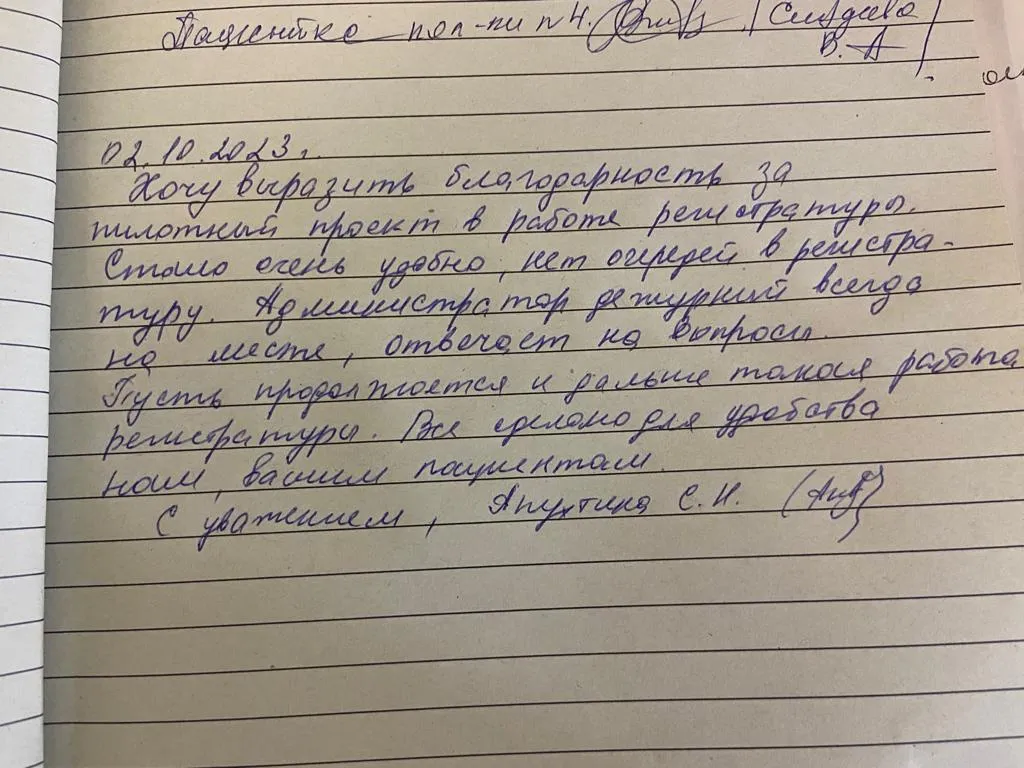 Пациентка пол-ки п 4.
В. А
02.10.2023г.
Хочу выразить благодарность за
пилотный проект в работе регистратуры.
Стало очень удобно, нет очередей в регистра-
туру. Администратор дежурный всегда
на месте, отвечает на вопросы.
Пусть продолжается и дальше такая работа
регистратуры. Все сделано для удобства
нам, вашим пациентам.
С уважением, Апухтина С.Н.